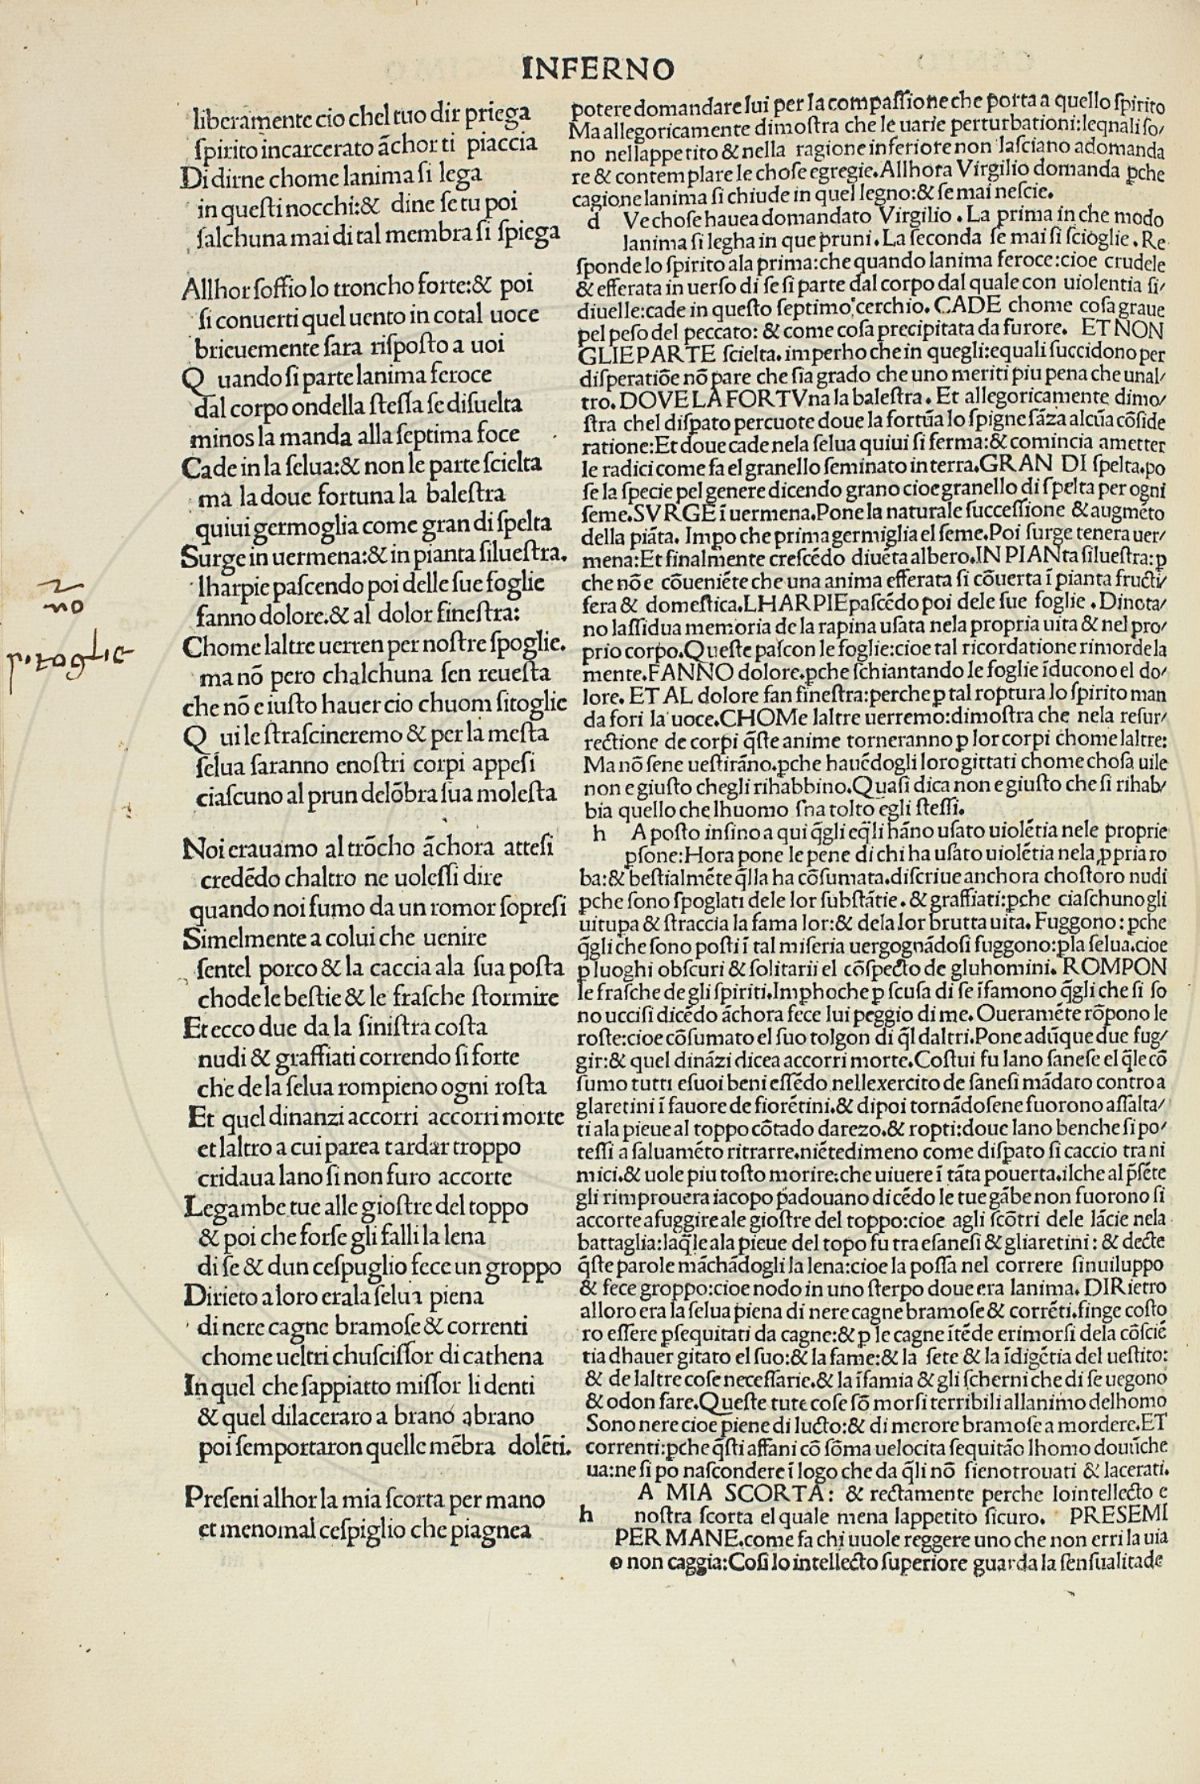 INFERNO
liberamente cio chel tuo dir priega
ſpirito incarcerato ãchor ti piaccia
Di dirne chome lanima ſi lega
in queſti nocchi:& dine ſe tu poi
ſalchuna mai di tal membra ſi ſpiega
Allhor ſoffio lo troncho forte:& poi
ſi conuerti quel uento in cotal uoce
brieuemente ſara riſpoſto a uoi
Q uando ſi parte lanima feroce
dal corpo ondella ſteſſa ſe diſuelta
minos la manda alla ſeptima foce
Cade in la ſelua:& non le parte ſcielta
ma la doue fortuna la baleſtra
quiui germoglia come gran di ſpelta
Surge in uermena:& in pianta ſilueſtra.
lharpie paſcendo poi delle ſue foglie
fanno dolore.& al dolor fineſtra:
Chome laltre uerren per noſtre ſpoglie.
ma nõ pero chalchuna ſen reueſta
che nõ e iuſto hauer cio chuom ſi toglie
Q ui le ſtraſcineremo & per la meſta
ſelua ſaranno enoſtri corpi appeſi
ciaſcuno al prun delõbra ſua moleſta
Noi erauamo al trõcho ãchora atteſi
credẽdo chaltro ne uoleſſi dire
quando noi fumo da un romor ſopreſi
Simelmente a colui che uenire
ſentel porco & la caccia ala ſua poſta
chode le beſtie & le fraſche ſtormire
Et ecco due da la ſiniſtra coſta
nudi & graffiati correndo ſi forte
che de la ſelua rompieno ogni roſta
Et quel dinanzi accorri accorri morte
et laltro a cui parea tardar troppo
cridaua lano ſi non furo accorte
Le gambe tue alle gioſtre del toppo
& poi che forſe gli falli la lena
di ſe & dun ceſpuglio fece un groppo
Dirieto a loro era la ſelua piena
di nere cagne bramoſe & correnti
chome ueltri chuſciſſor di cathena
In quel che ſappiatto miſſor li denti
& quel dilaceraro a brano a brano
poi ſemportaron quelle mẽbra dolẽti.
Preſeni alhor la mia ſcorta per mano
et menomal ceſpiglio che piagnea
potere domandare lui per la compaſſione che porta a quello ſpirito
Ma allegoricamente dimoſtra che le uarie perturbationi:leqnali ſo/
no nellappetito & nella ragione inferiore non laſciano adomanda
re & contemplare le choſe egregie. Allhora Virgilio domanda ꝑche
cagione lanima ſi chiude in quel legno:& ſe mai neſcie.
d Ve choſe hauea domandato Virgilio. La prima in che modo
lanima ſi legha in que pruni. La ſeconda ſe mai ſi ſcioglie. Re
ſponde lo ſpirito ala prima:che quando lanima feroce:cioe crudele
& efferata in uerſo di ſe ſi parte dal corpo dal quale con uiolentia ſi/
diuelle:cade in queſto ſeptimo cerchio. CADE chome coſa graue
pel peſo del peccato: & come coſa precipitata da furore. ET NON
GLIE PARTE ſcielta. imperho che in quegli:equali ſuccidono per
diſperatiõe nõ pare che ſia grado che uno meriti piu pena che unal/
tro. DOVE LA FORTVna la baleſtra. Et allegoricamente dimo/
ſtra chel diſpato percuote doue la fortũa lo ſpigne ſãza alcũa cõſide
ratione:Et doue cade nela ſelua quiui ſi ferma:& comincia ametter
le radici come fa el granello ſeminato in terra. GRAN DI ſpelta. po
ſe la ſpecie pel genere dicendo grano cioe granello di ſpelta per ogni
ſeme. SVRGE ĩ uermena. Pone la naturale ſucceſſione & augmẽto
della piãta. Impo che prima germiglia el ſeme. Poi ſurge tenera uer/
mena:Et finalmente creſcẽdo diuẽta albero. IN PIANta ſilueſtra:ꝑ
che nõ e cõueniẽte che una anima efferata ſi cõuerta ĩ pianta fructi/
fera & domeſtica. LHARPIE paſcẽdo poi dele ſue foglie. Dinota/
no laſſidua memoria de la rapina uſata nela propria uita & nel pro/
prio corpo. Queſte paſcon le foglie:cioe tal ricordatione rimorde la
mente. FANNO dolore. ꝑche ſchiantando le foglie ĩducono el do/
lore. ET AL dolore fan fineſtra:perche ꝑ tal roptura lo ſpirito man
da fori la uoce. CHOMe laltre uerremo:dimoſtra che nela reſur/
rectione de corpi q̃ſte anime torneranno ꝑ lor corpi chome laltre:
Ma nõ ſene ueſtirãno. ꝑche hauẽdogli loro gittati chome choſa uile
non e giuſto chegli rihabbino. Quaſi dica non e giuſto che ſi rihab/
bia quello che lhuomo ſna tolto egli ſteſſi.
h A poſto inſino a qui q̃gli eq̃li hãno uſato uiolẽtia nele proprie
ꝑſone:Hora pone le pene di chi ha uſato uiolẽtia nela ꝓpria ro
ba:& beſtialmẽte q̃lla ha cõſumata. diſcriue anchora choſtoro nudi
ꝑche ſono ſpogliati dele lor ſubſtãtie. & graffiati:ꝑche ciaſchuno gli
uitupa & ſtraccia la fama lor:& dela lor brutta uita. Fuggono: ꝑche
q̃gli che ſono poſti ĩ tal miſeria uergognãdoſi fuggono:ꝑ la ſelua.cioe
ꝑ luoghi obſcuri & ſolitarii el cõſpecto de gluhomini. ROMPON
le fraſche de gli ſpiriti. Imphoche ꝑ ſcuſa di ſe ĩfamono q̃gli che ſi ſo
no ucciſi dicẽdo ãchora fece lui peggio di me. Oueramẽte rõpono le
roſte:cioe cõſumato el ſuo tolgon di q̃l daltri. Pone adũque due fug/
gir:& quel dinãzi dicea accorri morte. Coſtui fu lano ſaneſe el q̃le cõ
ſumo tutti eſuoi beni eſſẽdo nellexercito de ſaneſi mãdato contro a
glaretini ĩ fauore de fiorẽtini.& dipoi tornãdoſene fuorono aſſalta/
ti ala pieue al toppo cõtado darezo.& ropti:doue lano benche ſi po/
teſſi a ſaluamẽto ritrarre. niẽtedimeno come diſpato ſi caccio tra ni
mici.& uole piu toſto morire:che uiuere ĩ tãta pouerta. ilche al p̃ſẽte
gli rimprouera iacopo padouano dicẽdo le tue gãbe non fuorono ſi
accorte a fuggire ale gioſtre del toppo:cioe agli ſcõtri dele lãcie nela
battaglia:laq̃le ala pieue del topo fu tra eſaneſi & gliaretini: & decte
q̃ſte parole mãchãdogli la lena:cioe la poſſa nel correre ſinuiluppo
& fece groppo:cioe nodo in uno ſterpo doue era lanima. DIRietro
alloro era la ſelua piena di nere cagne bramoſe & corrẽti. finge coſto
ro eſſere ꝑſequitati da cagne:& ꝑ le cagne ĩtẽde erimorſi dela cõſciẽ
tia dhauer gitato el ſuo:& la fame:& la ſete & la ĩdigẽtia del ueſtito:
& de laltre coſe neceſſarie.& la ĩfamia & gli ſcherni che di ſe uegono
& odon fare. Queſte tute coſe ſõ morſi terribili allanimo delhomo
Sono nere cioe piene di lucto:& di merore bramoſe a mordere. ET
correnti:ꝑche q̃ſti affani cõ ſõma uelocita ſequitão lhomo douũche
ua:ne ſi po naſcondere ĩ logo che da q̃li nõ ſieno trouati & lacerati.
h A MIA SCORTA: & rectamente perche lo intellecto e
noſtra ſcorta el quale mena lappetito ſicuro. PRESEMI
PER MANE. come fa chi uuole reggere uno che non erri la uia
o non caggia:Coſi lo intellecto ſuperiore guarda la ſenſualitade
no